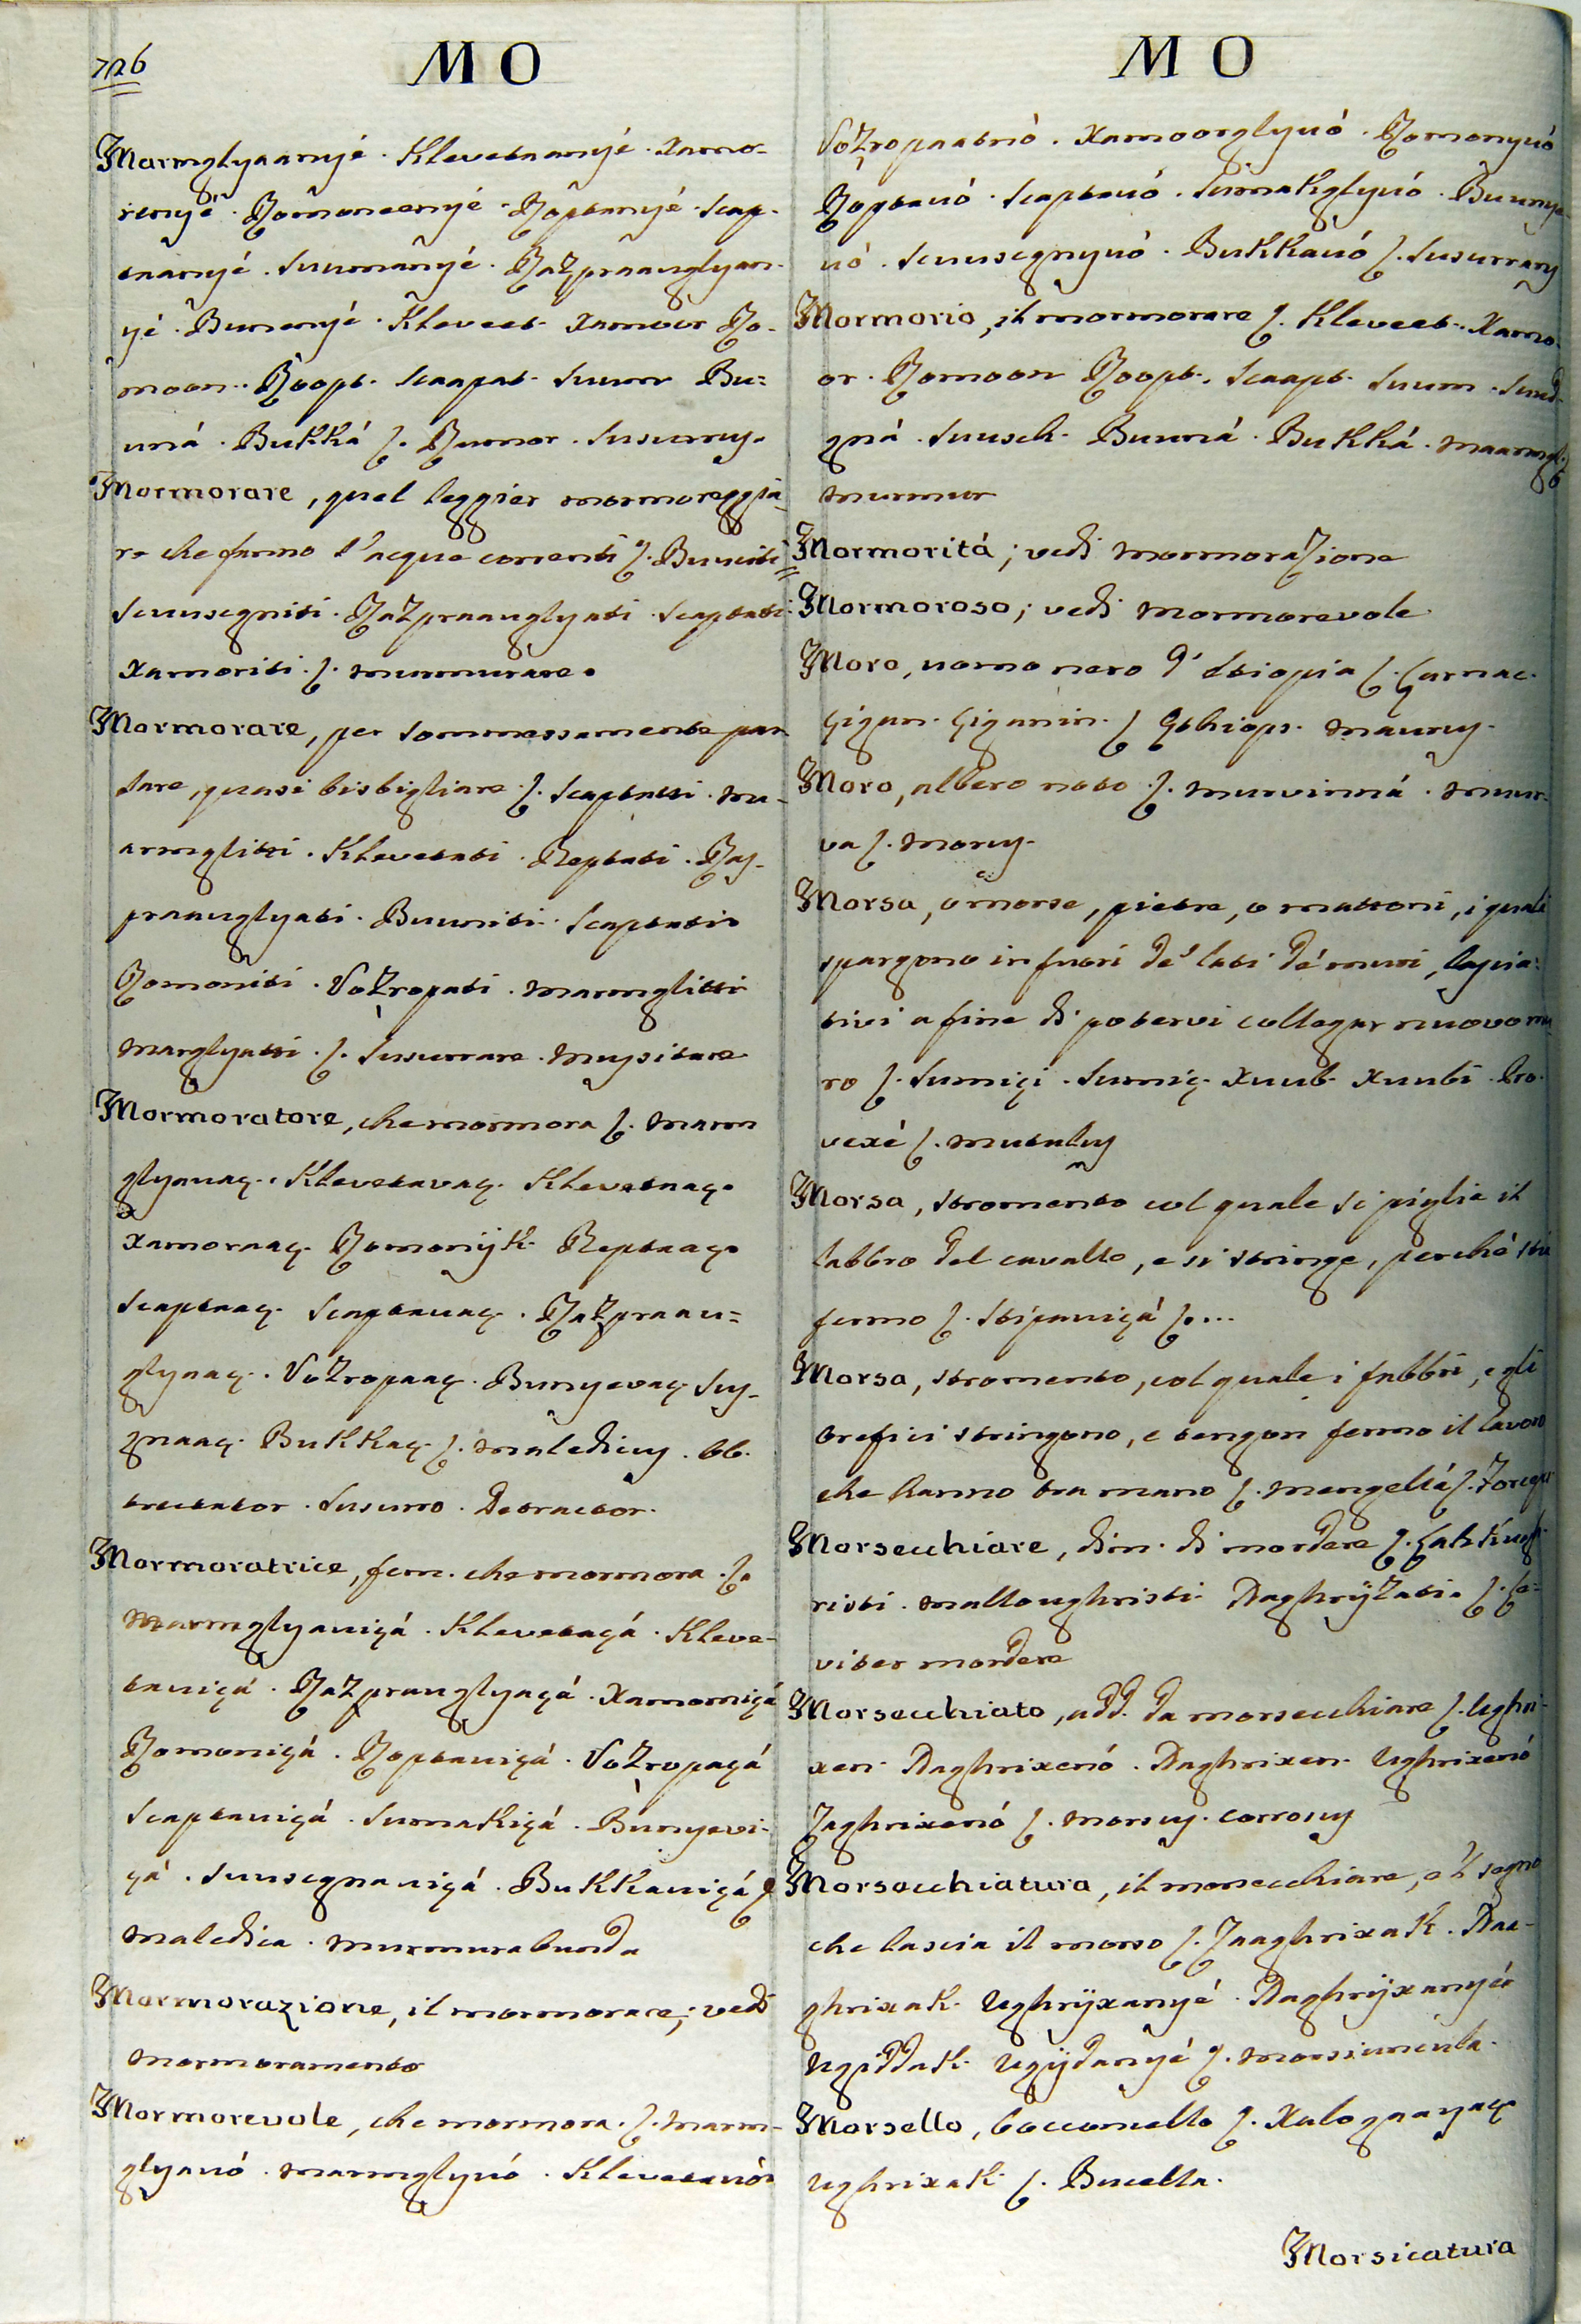 726
MO
Marmglyaanyé. Klevetaanyé. Xamo-
renyé. Romoneenyé. Roptanyé. Scap-
taanyé. Suumanyé. Razpraauglyan-
yé. Bunenyé. Kleveet. Xamoor Ro-
moon. Roopt. Scaapat. Suum Bu=
uná. Bukká ſ. Rumor. Susurruy.
Mormorare, quel leggier mormoreggia-
re che fanno l'acque correnti ſ. Buuniti
Scuusegniti. Razpraauglyati. Scaptati.
Xamoriti. ſ. Murmurare.
Mormorare, per sommessamente par
lare, quasi bisbigliare ſ. Scaptatti. Ma-
armglitti. Klevetati. Reptati. Ray-
praauglyati. Buuniti. Scaptati
Romoniti. Vozropati. Marmglitti
Marglyatti. ſ. Susurrare. Mupitare
Mormoratore, che mormora ſ. Marm
glyauaç. Klevetavaç. Klevetnaç.
Xamoraaç. Romonijk. Reptaaç.
Scaptaaç. Scaptauaç. Razpraau=
glyaaç. Vozropaaç. Bunyevaç. Suy-
gnaaç. Bukkaç. ſ. Malediciuy. Ob.
trectator. Susurro. Detractor.
Mormoratrice, fem. che mormora. ſ.
Marmglyauiçá. Klevetaçá. Kleve-
tauiçá. Razprauglyaçá. Xamorniçá
Romoniçá. Roptauiçá. Vozropaçá
Scaptauiçá. Sumakiçá. Bunyevi-
çá. Suusegnauiçá. Bukkauiçá ſ
Maledica. Murmurabunda
Mormorazione, il mormorare; vedi
Mormoramento
Mormorevole, che mormora. ſ. Marm-
glyauó. Marmglyuó. Klevetauó
MO
Vozropaatnó. Xamoorglyuó. Romonyuó
Roptauó. Scaptauó. Sumakglyuó. Buunye-
uó. Scuusegnyuó. Bukkauó ſ. Susurrany
Mormorio, il mormorare ſ. Kleveet. Xamo-
or. Romoon Roopt. Scaapt. Suum. Sund-
gná. Suusck. Buuná. Bukká. Maarmgl.
Murmur
Mormoritá; vedi Mormorazione
Mormoroso; vedi Mormorevole
Moro, uomo nero d' Etiopia ſ. Çarnac.
Çigan. Çiganin. ſ Æthiops. Mauruy.
Moro, albero noto. ſ. Murvinná. Muur-
va ſ. Moruy.
Morsa, o morse, pietre, o mattoni, i quali
spargono in fuori de' lati de' muri, lascia=
tivi a fine di potervi collegar nuovo mu
ro ſ. Sumiçi. Sumiç. Xuub. Xuubi. Pro-
vexé ſ. Mutuluy
Morsa, stromento col quale si piglia il
labbro del cavallo, e si stringe, perchè stia
fermo ſ. Stipauiçá ſ...
Morsa, stromento, col quale i fabbri, e gli
orefici stringono, e tengon fermo il lavoro
che hanno tra mano ſ. Mengellá ſ. Forceps
Morsecchiare, dim. di mordere ſ.
risti. Malloughristi Naghrÿzati. ſ. Le=
viter mordere
Morsecchiato, add. da morsecchiare ſ. Ughri-
xen. Naghrixenó. Naghrixen. Ughrixenó
Zaghrixenó ſ. Morsuy. Corrosuy
Morsecchiatura, il morsecchiare, e 'l segno
che lascia il morso ſ. Zaaghrixak. Naa-
ghrixak. Ughrÿxanyé. Naghrÿxanyé
Ugiddak. Ugÿdanyé ſ. Morsiuncula.
Morsello, bocconcello ſ. Xalognayaç
Ughrixak ſ. Bucella.
Morsicatura